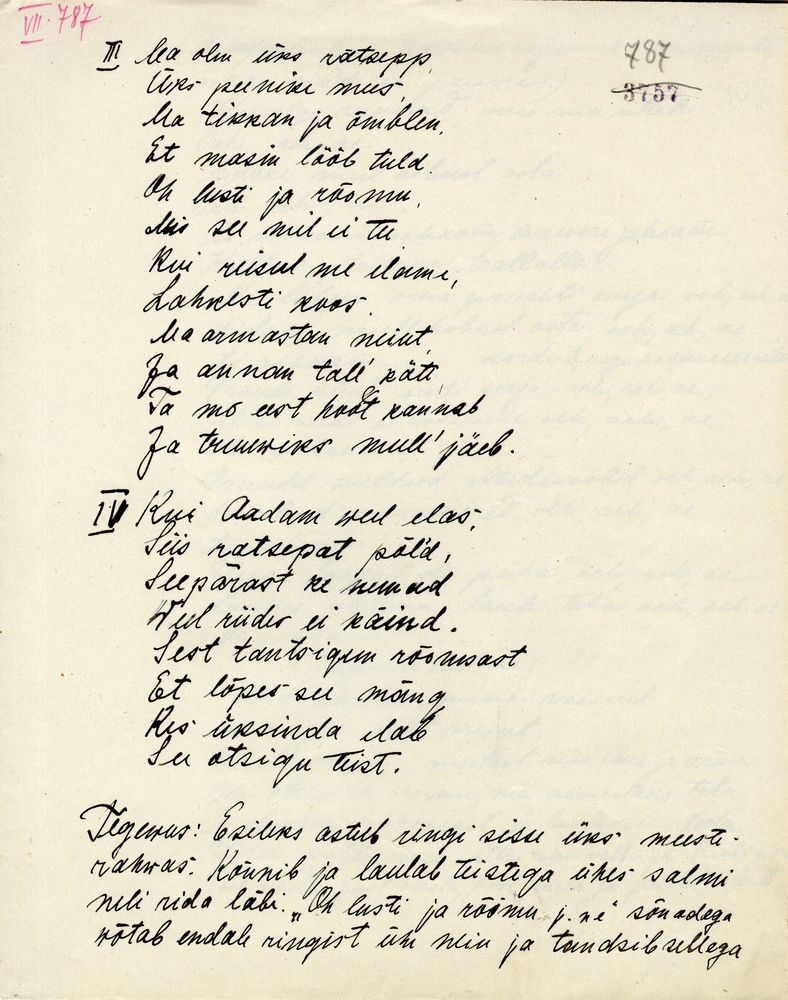 VII. 787
787
3757
III Ma olen üks rätsepp,
Üks peenike mees,
Ma tikkan ja õmblen,
Et masin lööb tuld.
Oh lusti ja rõõmu,
Mis see meil ei tee
Kui reisul me elame,
Lahkesti koos.
Ma armastan neiut,
Ja annan tall' kätt,
Ta mo eest hoolt kannab
Ja truuwiks mull' jäeb.
IV Kui Aadam weel elas,
Siis ratsepat põld,
Seepärast ke nemad
Weel riides ei käind.
Sest tantsigem rõõmsast
Et lõpes see mäng
Kes üksinda elab
See otsigu teist.
Tegewus: Esiteks astub ringi sisse üks meeste-
rahwas. Kõnnib ja laulab teistega ühes salmi
neli rida läbi. „Oh lusti ja rõõmu j.n.e" sõnadega
wõtab endale ringist ühe neiu ja tandsib sellega